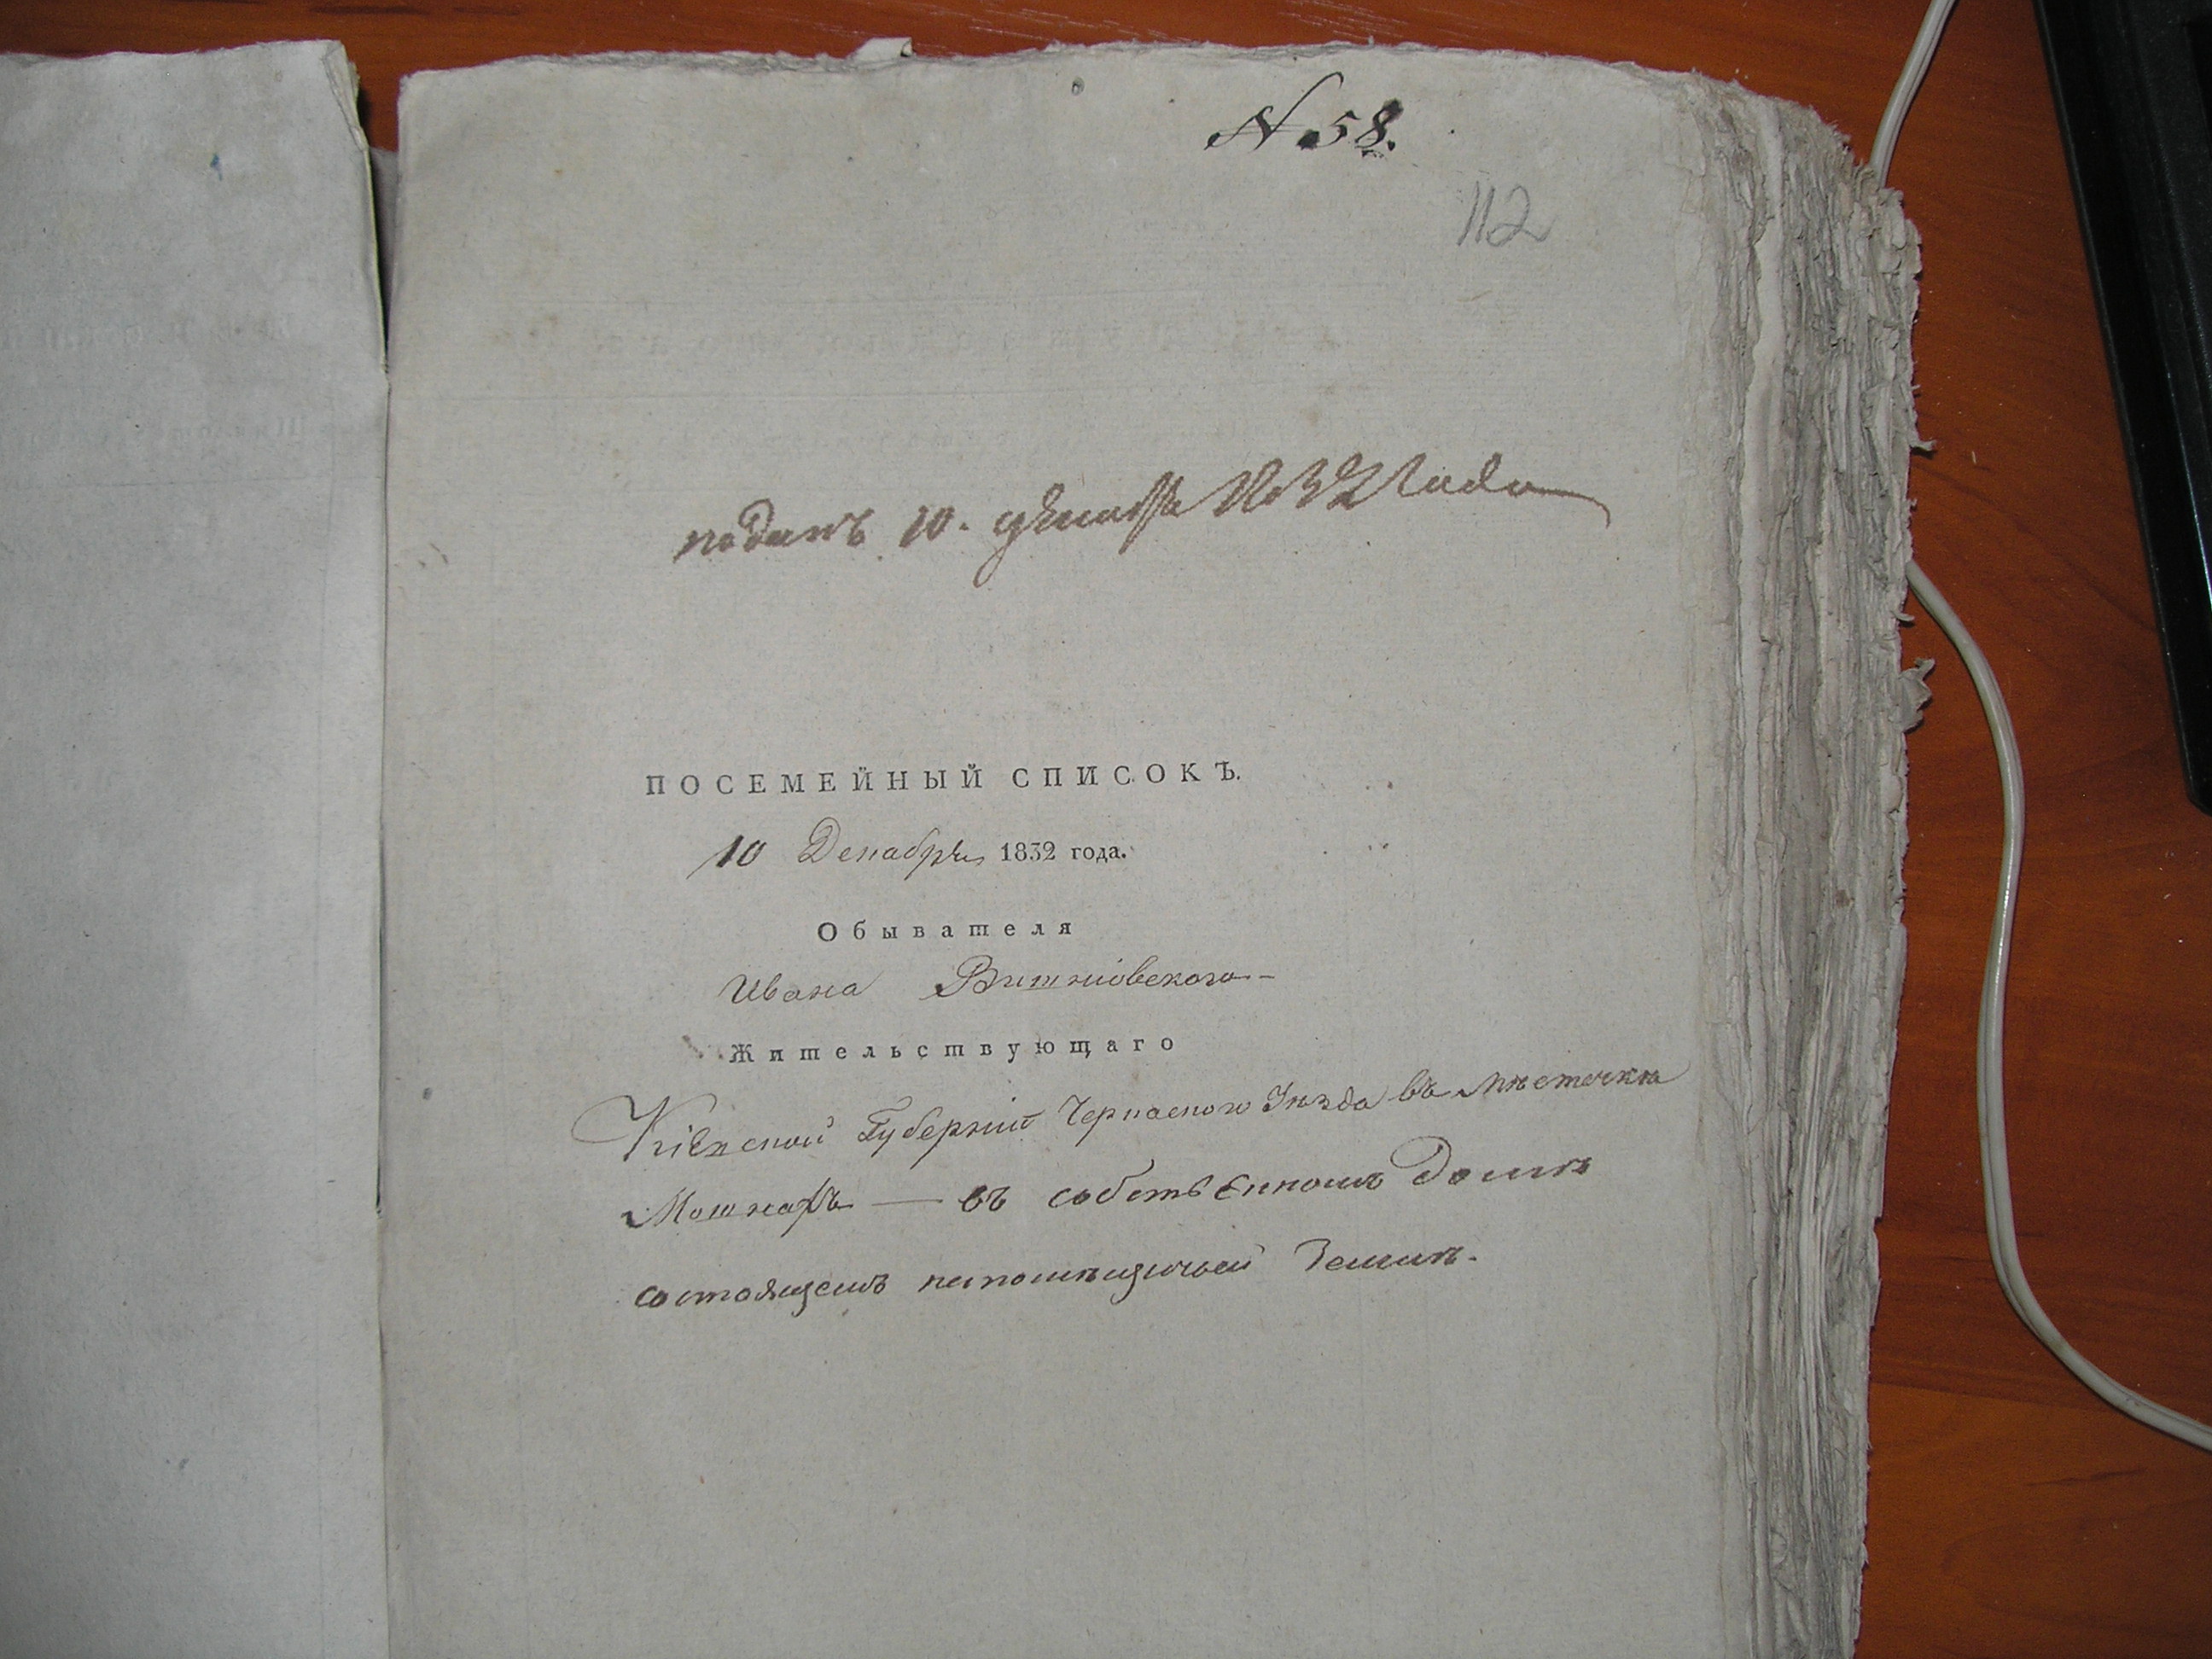 N. 58.
112
поданъ 10. декабря 1832 года
ПОСЕМЕЙНЫЙ СПИСОКЪ.
10 Декабря 1832 года.
Обывателя
Ивана Витковскаго
Жительствующаго
Кіевской Губерніи Черкаскаго Уѣзда въ Мѣстечкѣ
Мошнахъ — въ собственномъ домѣ
состоящемъ на помѣщичьей Землѣ.